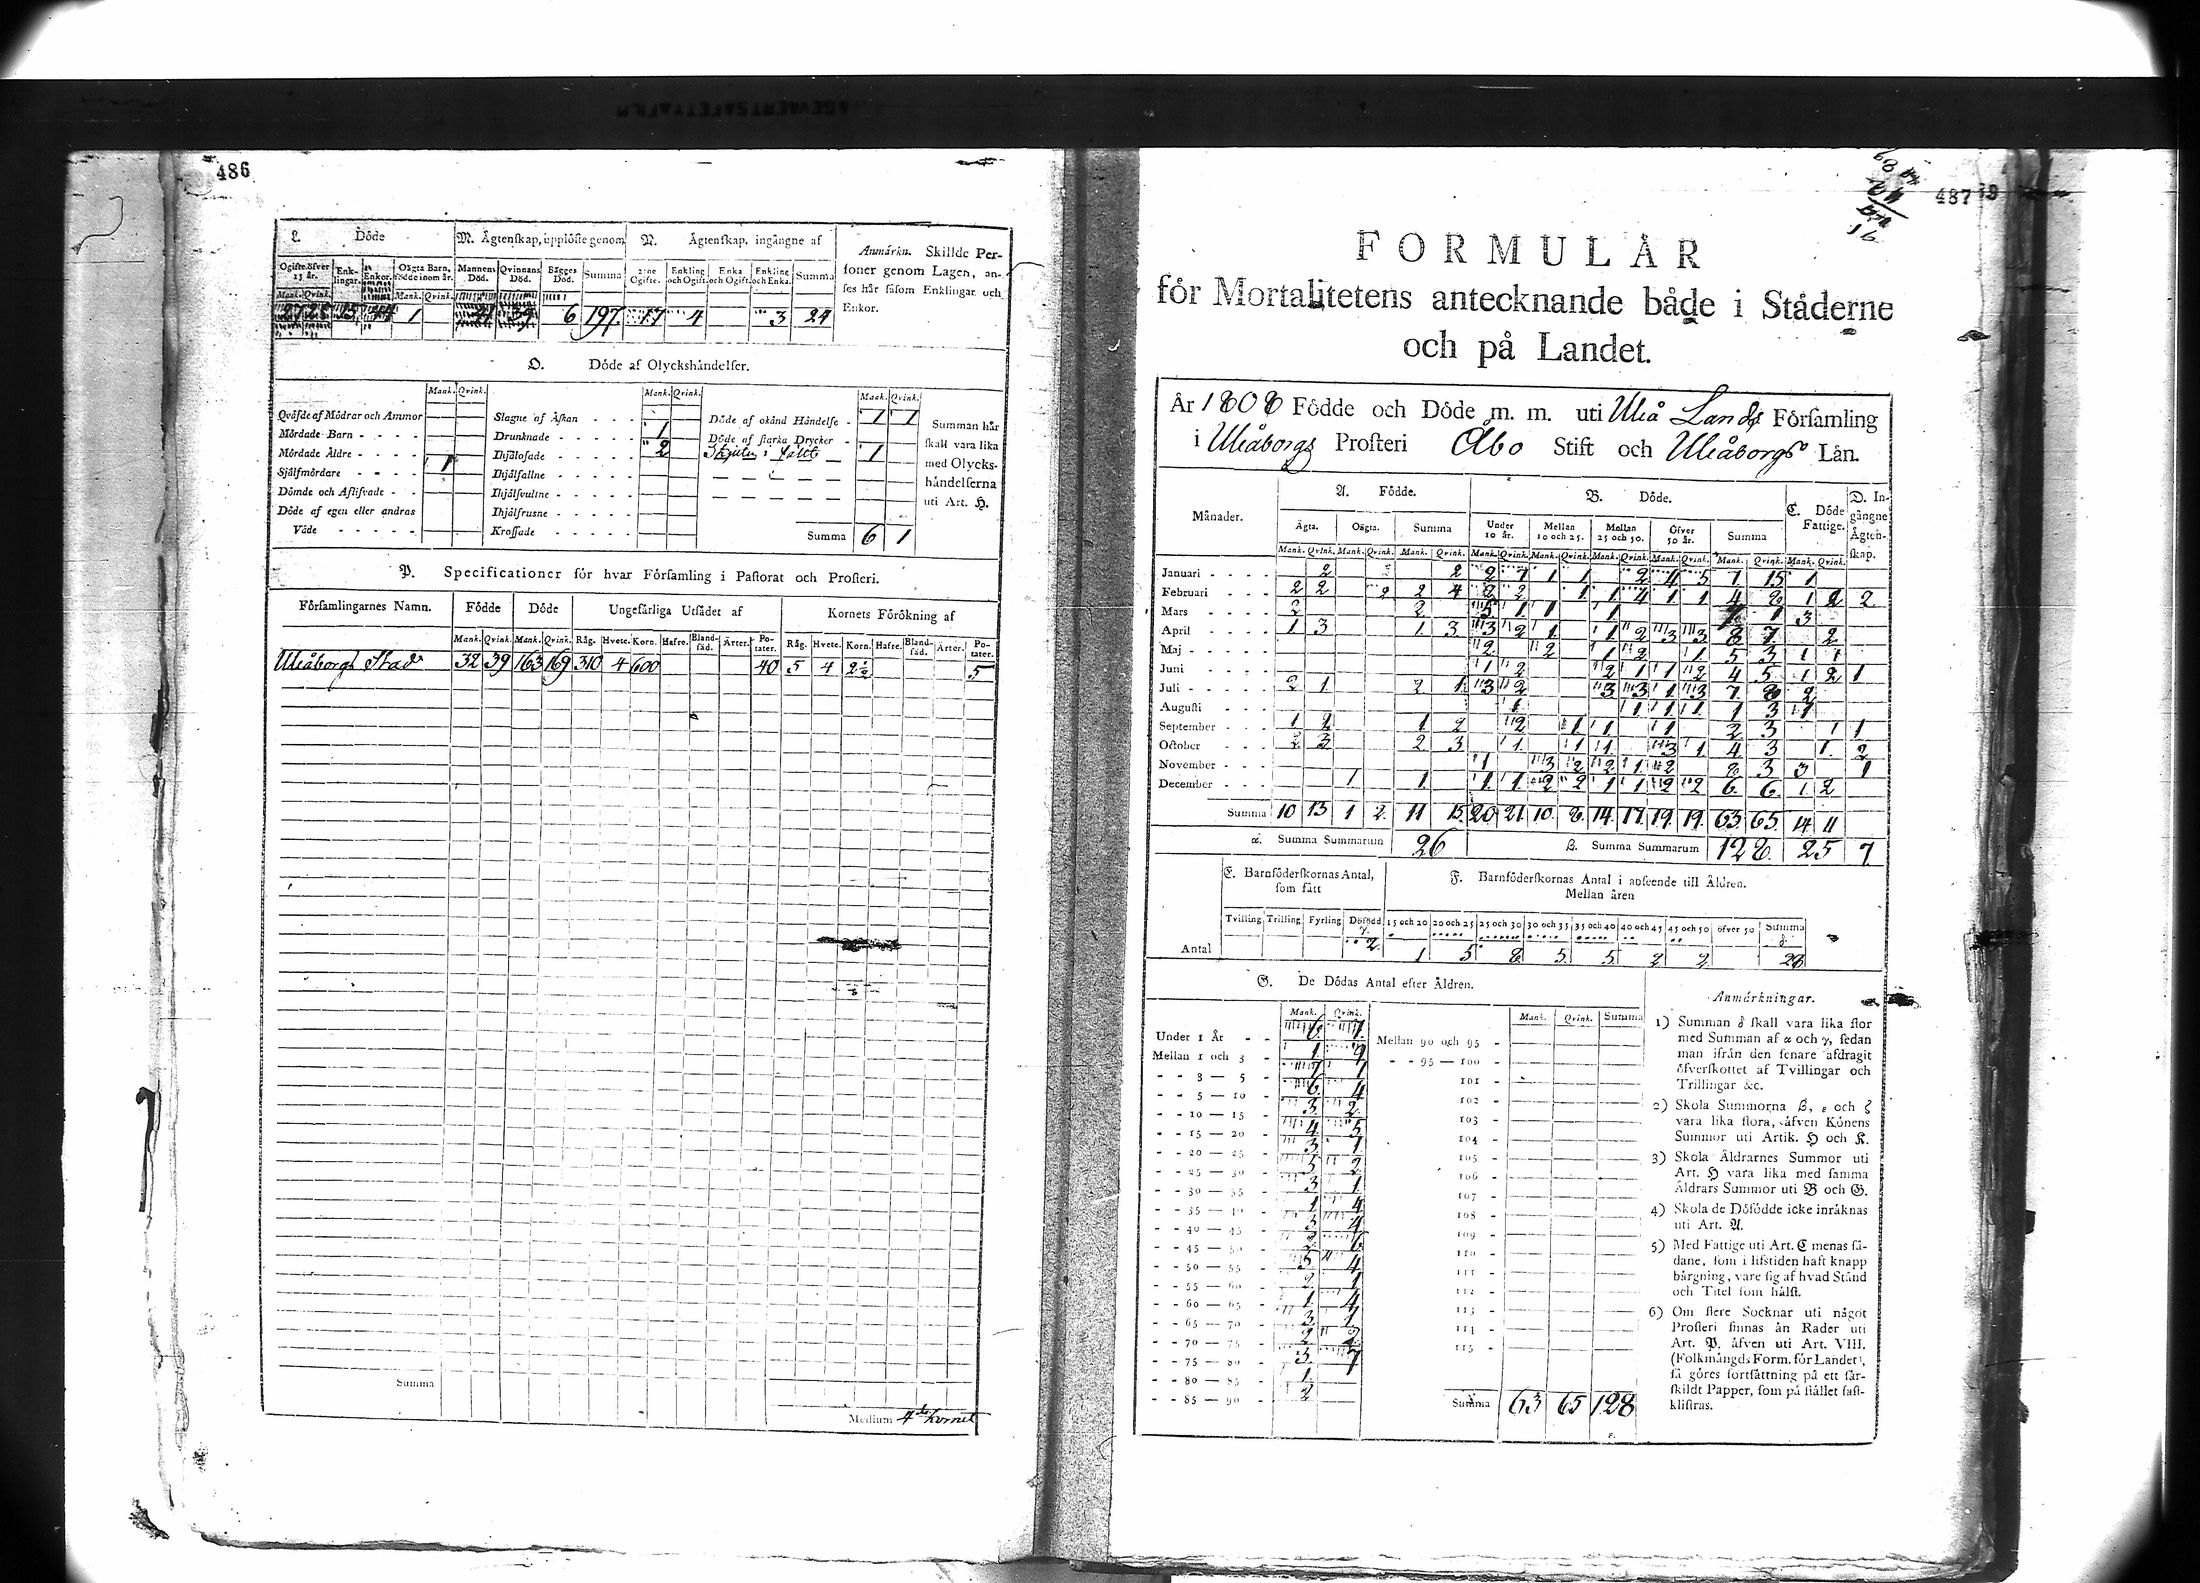 486
L. Döde
M. Ägtenskap, upplöste genom
N. Ägtenskap, ingångne af
Anmärkn. Skillde Personer genom Lagen, anses här såsom Enklingar och Enkor.
Ogifte öfver 15 år. Enklingar. Enkor. Oägta Barn, födde inom år. Mannens Död. Qvinnans Död. Bägges Död. Summa Enkling och Ogift. Enka och Ogift. Enkling och Enka. Summa
Mank. Qvink. Mank. Qvink.
27 25 13 1 39 6 197 17 4 3 24
O. Döde af Olyckshändelser.
Mank. Qvink. Mank. Qvink. Mank. Qvink.
Qväfde af Mödrar och Ammor
Mördade Barn - - - -
Mördade Äldre - - - -
Själfmördare - - - - 1
Dömde och Aflifvade - -
Döde af egen eller andras Våde - - - - -
Slagne af Åskan - - -
Drunknade - - - - - 1
Ihjälosade - - - - - 2
Ihjälfallne - - - - -
Ihjälsvultne - - - - -
Ihjälfrusne - - - - -
Krossade - - - - -
Döde af okänd Händelse - 1 1
Döde af starka Drycker -
1
Summa 6 1
Summan här skall vara lika med Olyckshändelserna uti Art. H.
P. Specificationer för hvar Församling i Pastorat och Prosteri.
Församlingarnes Namn. Födde Döde Ungefärliga Utsädet af Kornets Förökning af
Mank. Qvink. Mank. Qvink. Råg. Hvete. Korn. Hafre. Blandsäd. Ärter. Potater. Råg. Hvete. Korn. Hafre. Blandsäd. Ärter. Potater.
Uleåborgs Stad 32 39 163 169 310 4 600 40 5 4 2½ 5
Summa
Medium 4de Kornet
487
FORMULÄR
för Mortalitetens antecknande både i Städerne
och på Landet.
År 1808 Födde och Döde m. m. uti Uleå Lands Församling
i Uleåborgs Prosteri Åbo Stift och Uleåborgs Län.
Månader.
A. Födde.
B. Döde.
C. Döde Fattige.
D. Ingångne Ägtenskap.
Ägta. Oägta. Summa Under 10 år. Mellan 10 och 25. Mellan 25 och 50. Öfver 50 år. Summa
Mank. Qvink. Mank. Qvink. Mank. Qvink. Mank. Qvink. Mank. Qvink. Mank. Qvink. Mank. Qvink. Mank. Qvink. Mank. Qvink.
Januari - - - - 2 2 2 7 1 1 2 4 5 7 15 1
Februari - - - - 2 2 2 2 4 2 2 1 1 4 1 1 4 8 1 2 2
Mars - - - - 2 2 5 1 1 1 1 3
April - - - - 1 3 1 3 3 2 1 1 2 3 3 8 7 2
Maj - - - - 2 2 1 2 1 5 3 1 1
Juni - - - - 1 2 2 1 1 2 4 5 1 2 1
Juli - - - - 2 1 2 1 3 2 3 3 1 3 7 8 2
Augusti - - - 1 1 1 1 1 3 1
September - - - 1 2 1 2 2 1 1 1 2 3 1 1
October - - - 2 3 2 3 1 1 1 3 1 4 3 1 2
November - - - 1 3 2 2 1 2 8 3 3 1
December - - - 1 1 1 1 2 2 1 1 2 2 6 6 1 2
Summa 10 13 1 2 11 15 20 21 10 8 14 17 19 19 63 65 14 11
α. Summa Summarum 26 β. Summa Summarum 128 25 7
E. Barnsöderskornas Antal, som fått
F. Barnföderskornas Antal i anseende till Åldren.
Mellan åren
Tvilling Trilling Fyrling Dödfödd 15 och 20 20 och 25 25 och 30 30 och 35 35 och 40 40 och 45 45 och 50 öfver 50 Summa
Antal 2 1 5 8 5 5 2 2 28
G. De Dödas Antal efter Åldren.
Mank. Qvink. Mank. Qvink. Summa
Under 1 År - - 6 7
Mellan 1 och 3 - 1 9
- - 3 — 5 - 7 1
- - 5 — 10 - 6 4
- - 10 — 15 - 3 2
- - 15 — 20 - 4 5
- - 20 — 25 - 3 1
- - 25 — 30 - 5 2
- - 30 — 35 - 3 1
- - 35 — 40 - 1 4
- - 40 — 45 - 3 4
- - 45 — 50 - 2 6
- - 50 — 55 - 5 4
- - 55 — 60 - 2 1
- - 60 — 65 - 1 4
- - 65 — 70 - 3 1
- - 70 — 75 - 2 2
- - 75 — 80 - 3 7
- - 80 — 85 - 1
- - 85 — 90 - 2
Mellan 90 och 95 -
- - 95 — 100 -
101 -
102 -
103 -
104 -
105 -
106 -
107 -
108 -
109 -
110 -
111 -
112 -
113 -
114 -
115 -
Summa 63 65 128
Anmärkningar.
1) Summan δ skall vara lika stor
med Summan af α och γ, sedan
man ifrån den senare afdragit
öfverskottet af Tvillingar och
Trillingar &c.
2) Skola Summorna β, ε och ζ
vara lika stora, äfven Könens
Summor uti Artik. H och K.
3) Skola Åldrarnes Summor uti
Art. H vara lika med samma
Åldrars Summor uti B och G.
4) Skola de Döfödde icke inräknas
uti Art. A.
5) Med Fattige uti Art. C menas så-
dane, som i lifstiden haft knapp
bärgning, vare sig af hvad Stånd
och Titel som hälst.
6) Om flere Socknar uti något
Prosteri finnas än Rader uti
Art. P. äfven uti Art. VIII.
(Folkmängds Form. för Landet),
så göres fortsättning på ett sär-
skildt Papper, som på stället fast-
klistras.